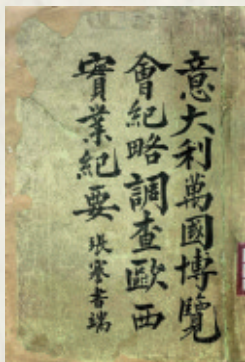 意大利萬國博覽
會紀略調查歐西
實業紀要 張謇書端